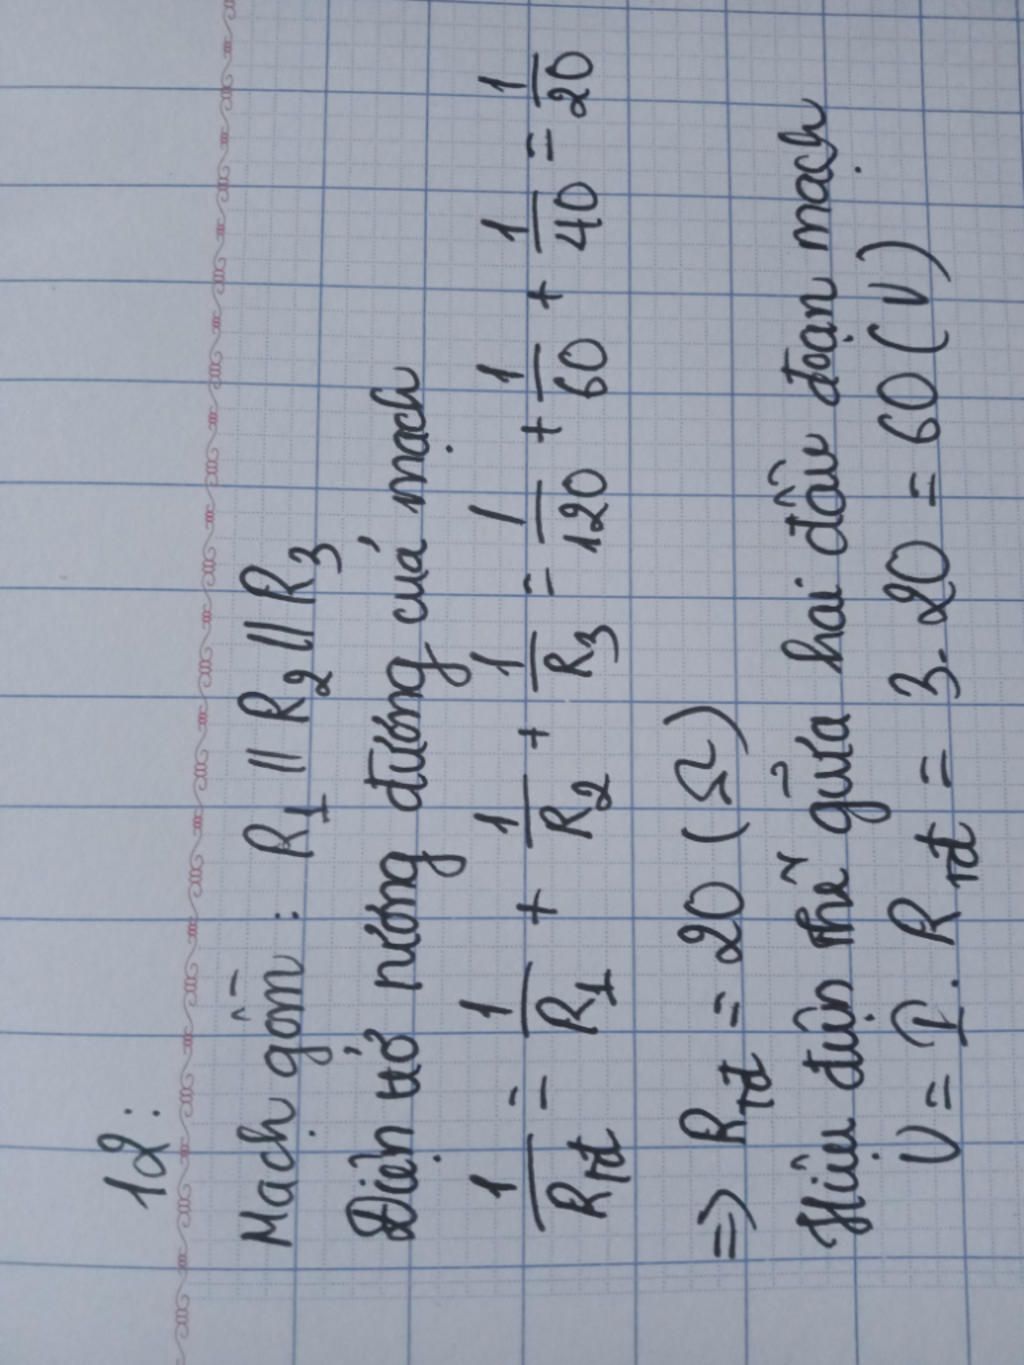 12:
Mạch gồm : R1 // R2 // R3
Điện trở tương đương của mạch
1/Rtđ = 1/R1 + 1/R2 + 1/R3 = 1/120 + 1/60 + 1/40 = 1/20
=> Rtđ = 20 (Ω)
Hiệu điện thế giữa hai đầu đoạn mạch
U = I . Rtđ = 3. 20 = 60 (V)